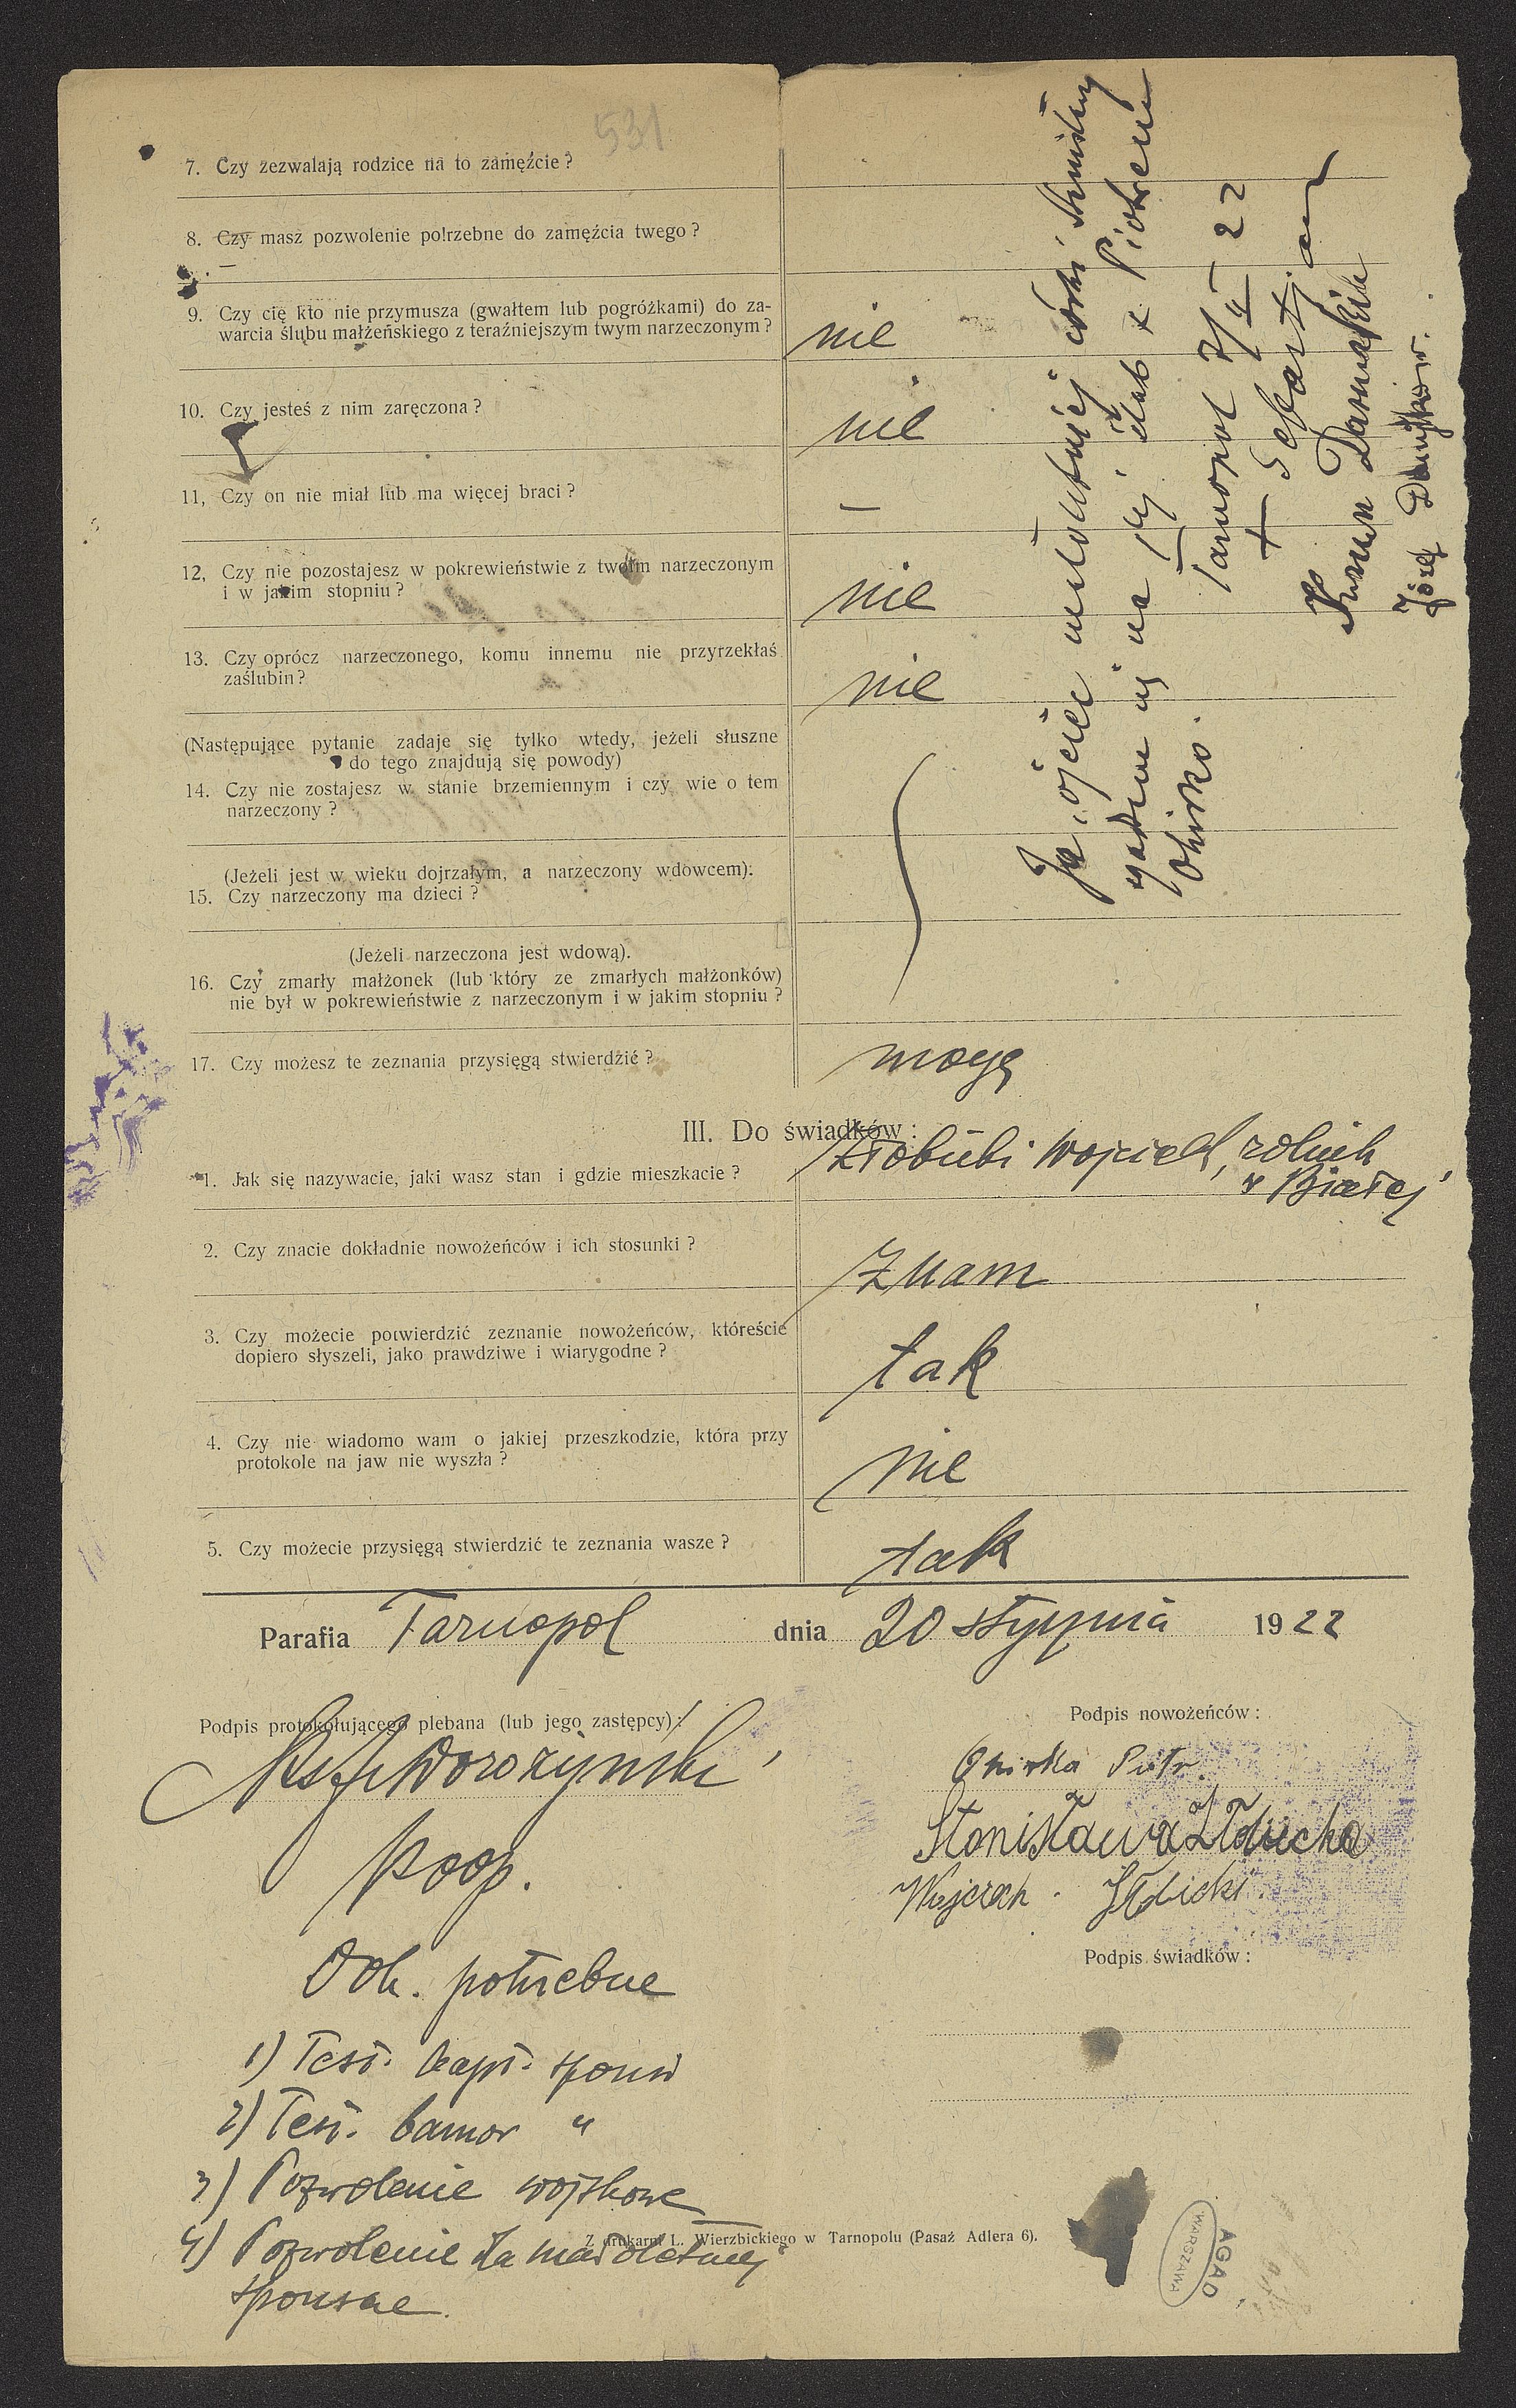 531
7. Czy zezwalają rodzice na to zamęźcie?
8. Czy masz pozwolenie potrzebne do zamęźcia twego?
9. Czy cię kto nie przymusza (gwałtem lub pogróżkami) do za-
warcia ślubu małżeńskiego z teraźniejszym twym narzeczonym?
nie
10. Czy jesteś z nim zaręczona?
nie
11, Czy on nie miał lub ma więcej braci?
—
12, Czy nie pozostajesz w pokrewieństwie z twoim narzeczonym
i w jakim stopniu?
nie
13. Czy oprócz narzeczonego, komu innemu nie przyrzekłaś
zaślubin?
nie
(Następujące pytanie zadaje się tylko wtedy, jeżeli słuszne
do tego znajdują się powody)
14. Czy nie zostajesz w stanie brzemiennym i czy wie o tem
narzeczony?
(Jeżeli jest w wieku dojrzałym, a narzeczony wdowcem):
15. Czy narzeczony ma dzieci?
(Jeżeli narzeczona jest wdową).
16. Czy zmarły małżonek (lub który ze zmarłych małżonków)
nie był w pokrewieństwie z narzeczonym i w jakim stopniu?
17. Czy możesz te zeznania przysięgą stwierdzić?
mogę
Ja, ojciec małoletniej córki
zgadzam się na jej ślub z Piotrem
Ohirko.
Tarnopol 22
+
Roman
Józef
III. Do świadków:
1. Jak się nazywacie, jaki wasz stan i gdzie mieszkacie?
Wojciech, rolnik
w Białej
2. Czy znacie dokładnie nowożeńców i ich stosunki?
Znam
3. Czy możecie potwierdzić zeznanie nowożeńców, któreście
dopiero słyszeli, jako prawdziwe i wiarygodne?
tak
4. Czy nie wiadomo wam o jakiej przeszkodzie, która przy
protokole na jaw nie wyszła?
nie
5. Czy możecie przysięgą stwierdzić te zeznania wasze?
tak
Parafia Tarnopol dnia 20 stycznia 1922
Podpis protokołującego plebana (lub jego zastępcy):
koop.
Podpis nowożeńców:
Ohirka Piotr.
Stanisława
Wojciech
Podpis świadków:
Dok. potrzebne
1) Test. bapt. sponsi
2) Test. bannor "
3) Pozwolenie wojskowe
4) Pozwolenie dla małoletniej
sponsae.
Z drukarni L. Wierzbickiego w Tarnopolu (Pasaż Adlera 6).
AGAD
WARSZAWA